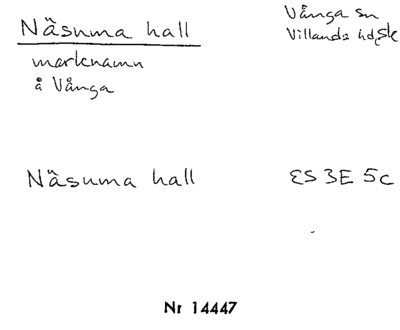 Näsuma hall
marknamn
å Vånga
Vånga sn
Villands hd Sk
Näsuma hall
ES 3E 5c
Nr 14447